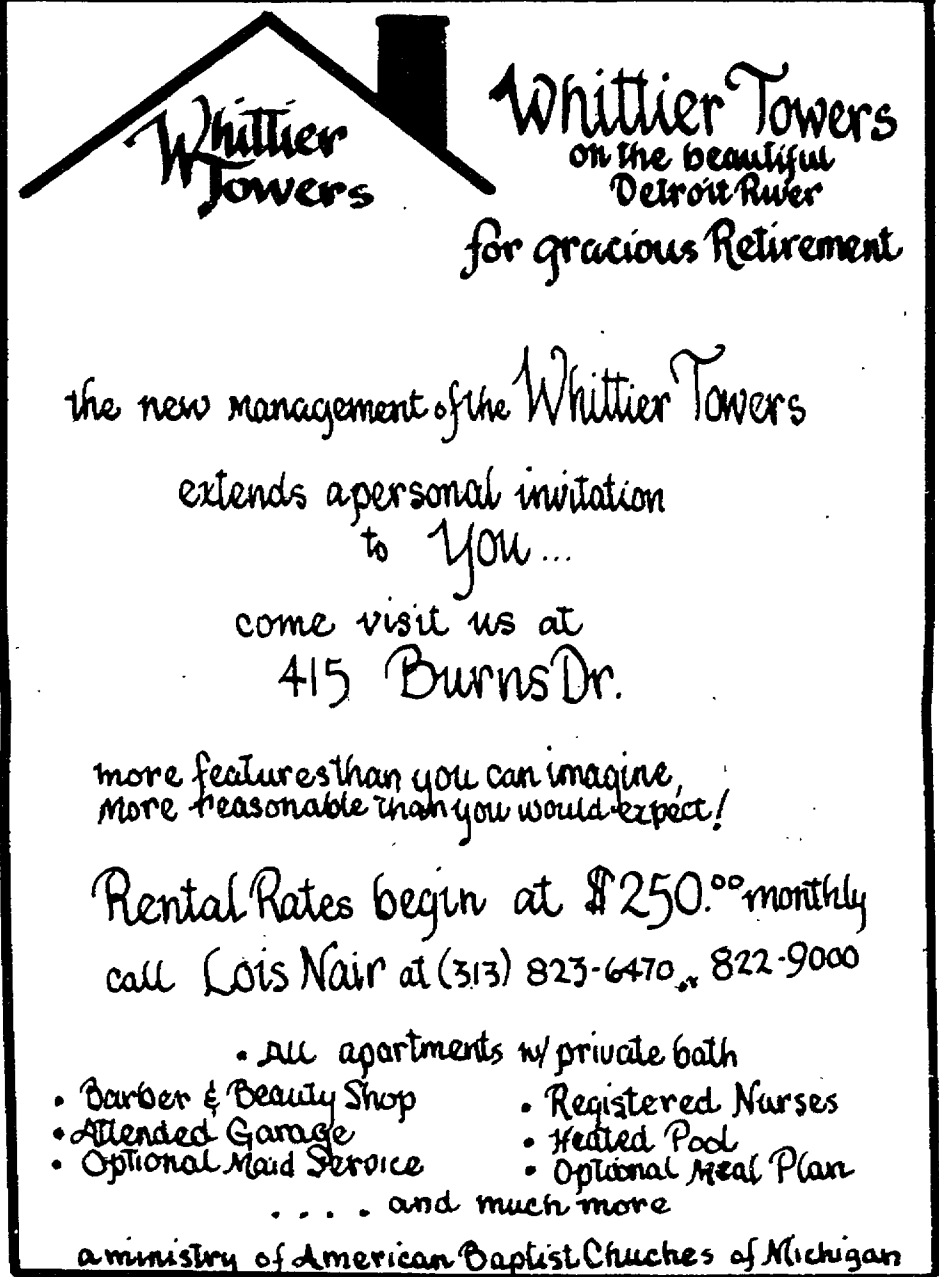 Whittier
Towers
Whittier Towers
on the beautiful
Detroit River
for gracious Retirement
the new management of the Whittier Towers
extends a personal invitation
to You...
come visit us at
415 Burns Dr.
more features than you can imagine,
more reasonable than you would expect!
Rental Rates begin at $250.00 monthly
call Lois Nair at (313) 823-6470 or 822-9000
• All apartments w/ private bath
• Barber & Beauty Shop
• Attended Garage
• Optional Maid Service
• Registered Nurses
• Heated Pool
• Optional Meal Plan
. . . . and much more
a ministry of American Baptist Chuches of Michigan